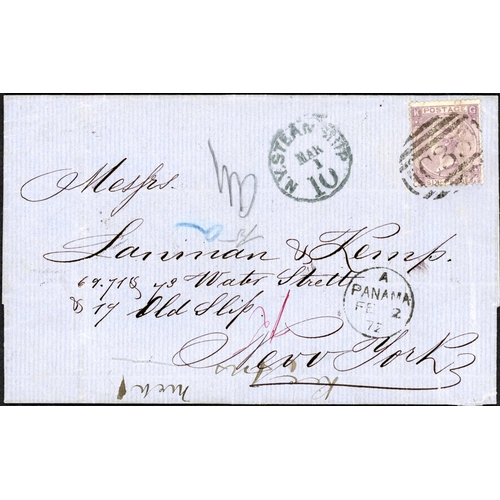 K POSTAGE G
C35
N.Y. STEAM SHIP
MAR
1
10
Messrs.
Lanman & Kemp.
69.71 & 73 Water Strett
& 19 Old Slip
New York
A
PANAMA
FE 2
72